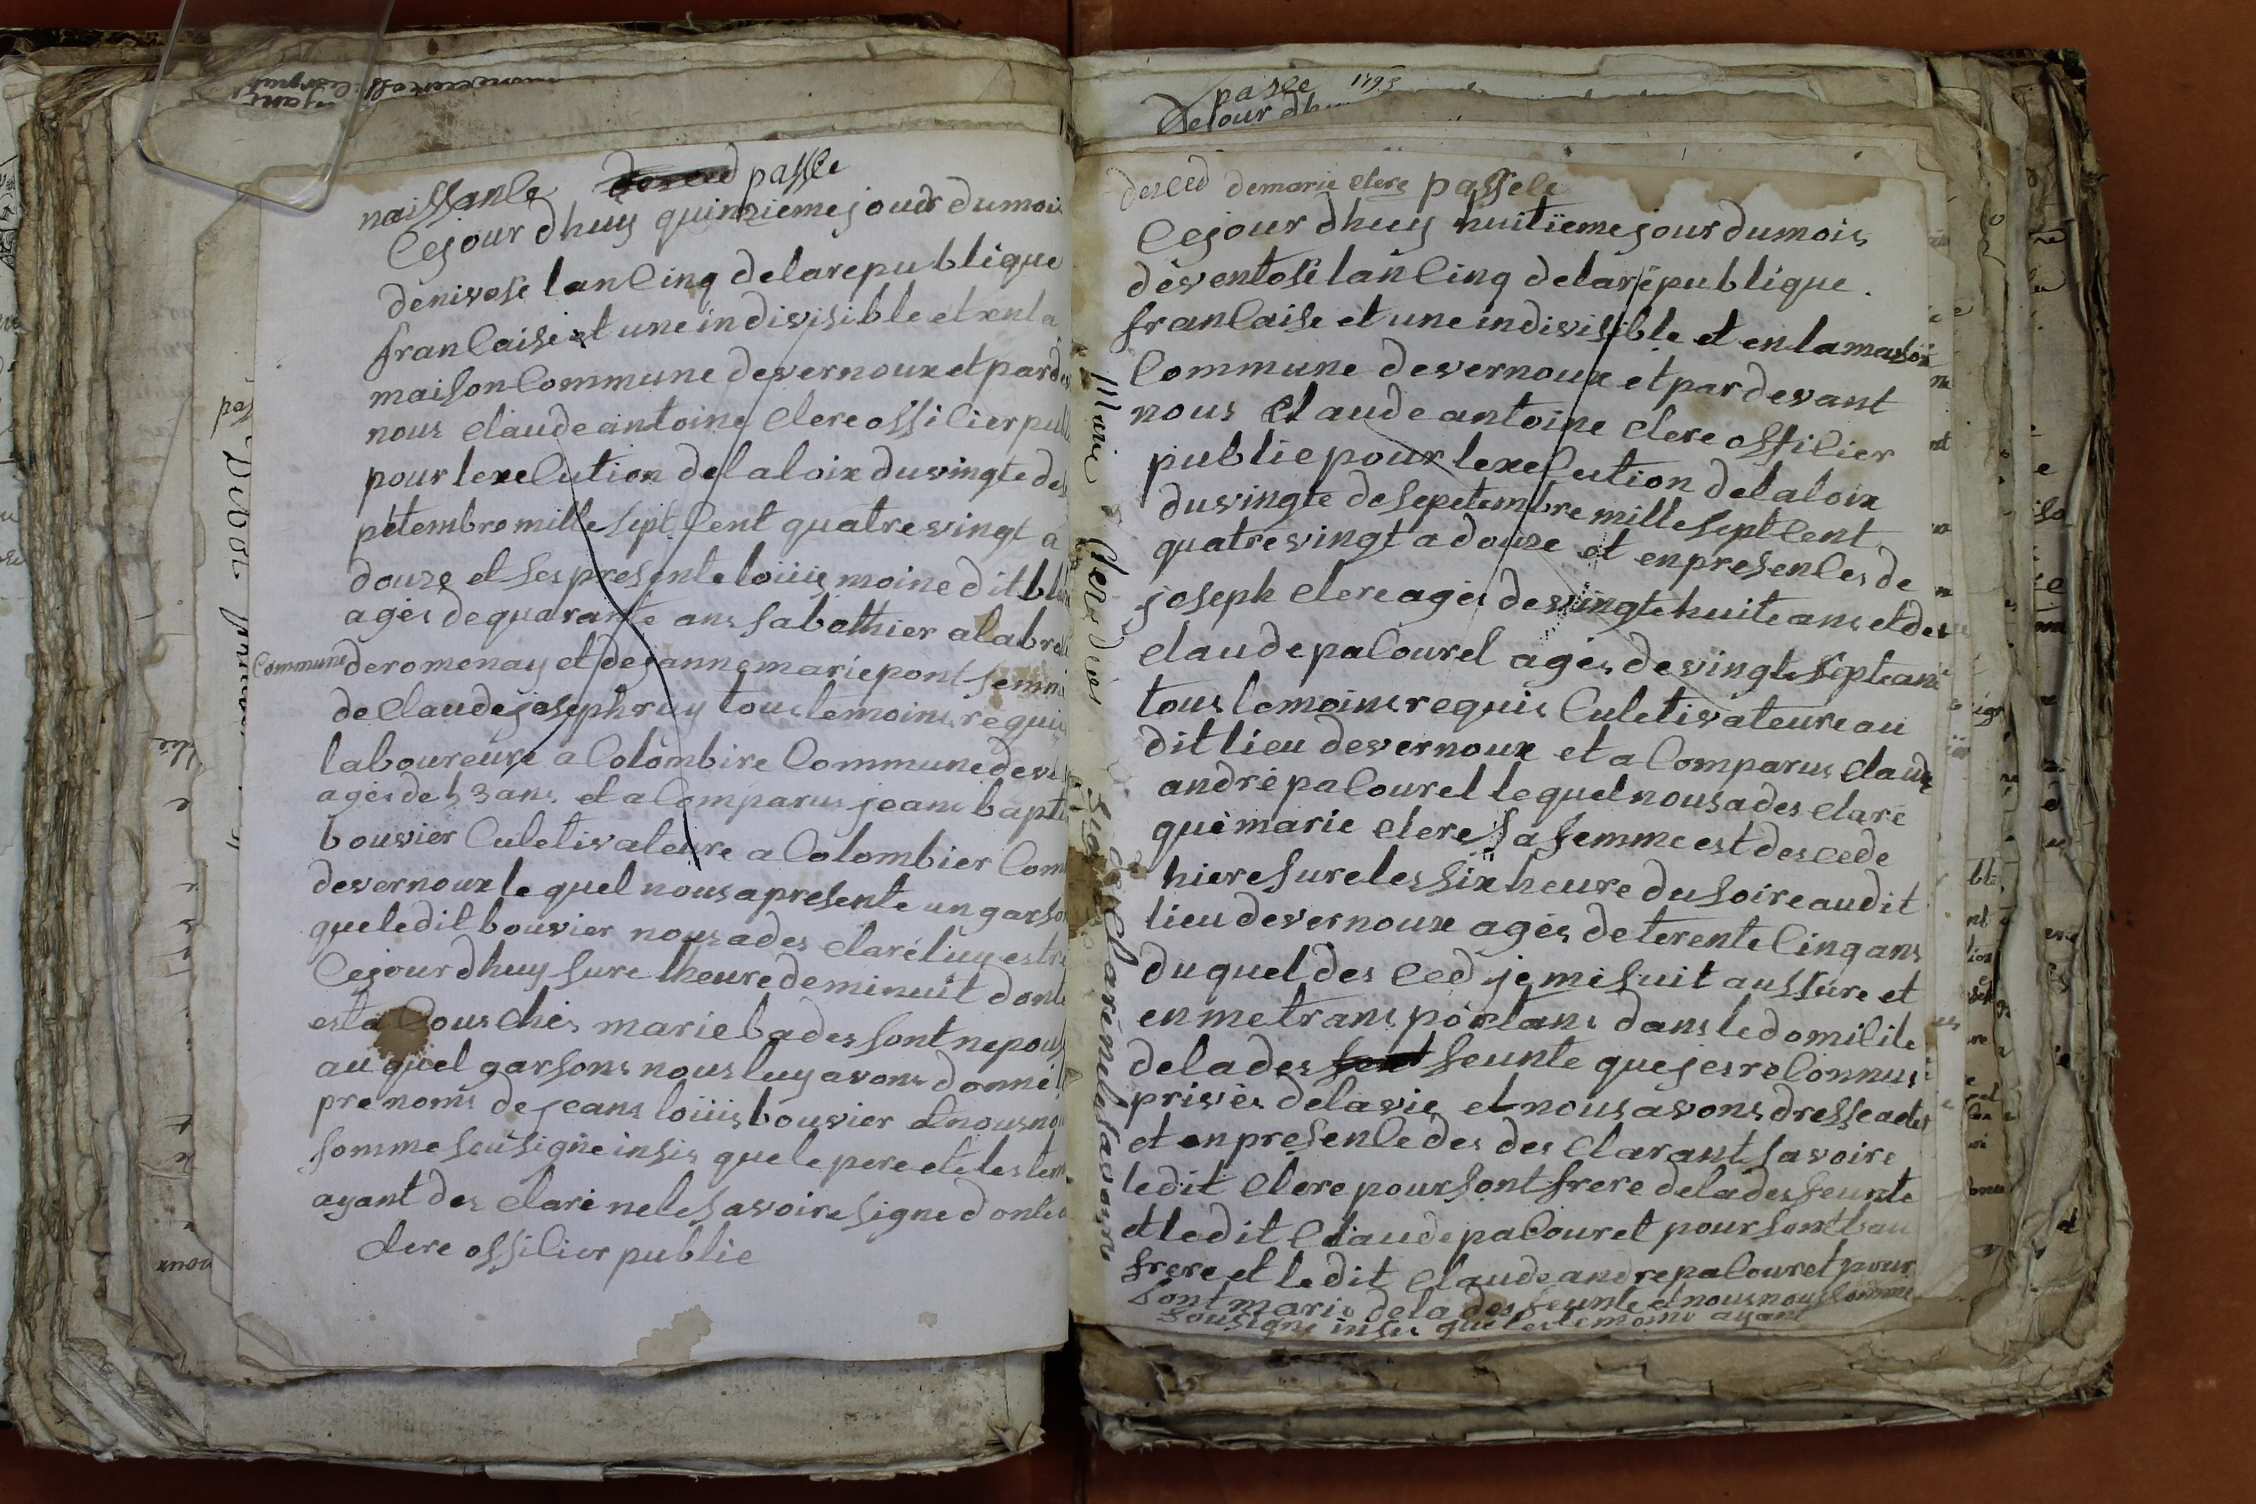 naissance passee
Cejour dhuy quinzieme jour dumois
denivose lan Cinq delarepublique
francaise et une indivisible et enla
maison Commune devernoux et pard
nous claude antoine clere officier pu
pour lexecution delaloix duvingte de
petembre mille sept Cent quatrevingt a
douze et ses presente loüiis moine dit bl
agés dequarante ans sabothier alabre
Commune deromenay et dejanne marie pont femm
de Claude joseph ruy tous temoins requi
laboureure a Colombire Commune deve
agés de 53 ans et a Comparus jeans bapti
bouvier Culetivateure a Colombier Com
devernoux le quel nousapresente un garso
queledit bouvier nousades claré luy estre
Cejour dhuy sure lheuredeminuit donte
esta Couschés marie badet sont nepous
au quel garsons nous luy avons donné l
prenoms de jeans loüiis bouvier et nous no
somme sousigne insis que le pere et les tem
ayant des claré nelesavoire signe donte
clere officier public
pasée 1793
Cejour dh
desced demarie clere passele
Cejour dhuy huitieme jour dumois
deventose lan Cinq delarepublique
francaise et une indivisible et enlamaison
Commune devernoux et pardevant
nous claude antoine clere officier
public pour lexecution delaloix
duvingte desepetembre mille sept Cent
quatrevingt a douze et enpresences de
joseph clere agés devingte huite ans et de
claude paCouret agés devingte septe ans
tous temoins requis Culetivateure au
dit lieu devernoux et a Comparus claude
andré paCouret lequel nousades claré
quemarie clere sa femme est descede
hiere sure les six heure du soire audit
lieu devernoux agés deterente Cinq ans
du quel des ced je mesuit aussure et
enmetrans portans dans le domicile
delades feunte que jes reConnus
privés delavie et nous avons dresse acte
et enpresence des des clarant savoire
ledit clere pour sont frere delades feunte
et ledit claude paCouret pour sont bau
frere et le dit claude andre paCouret pour
sont marie dela des feunte et nous nous somme
sousigne insis que les temoins ayant
Marie Clere des
des claré nelesavoire
signe